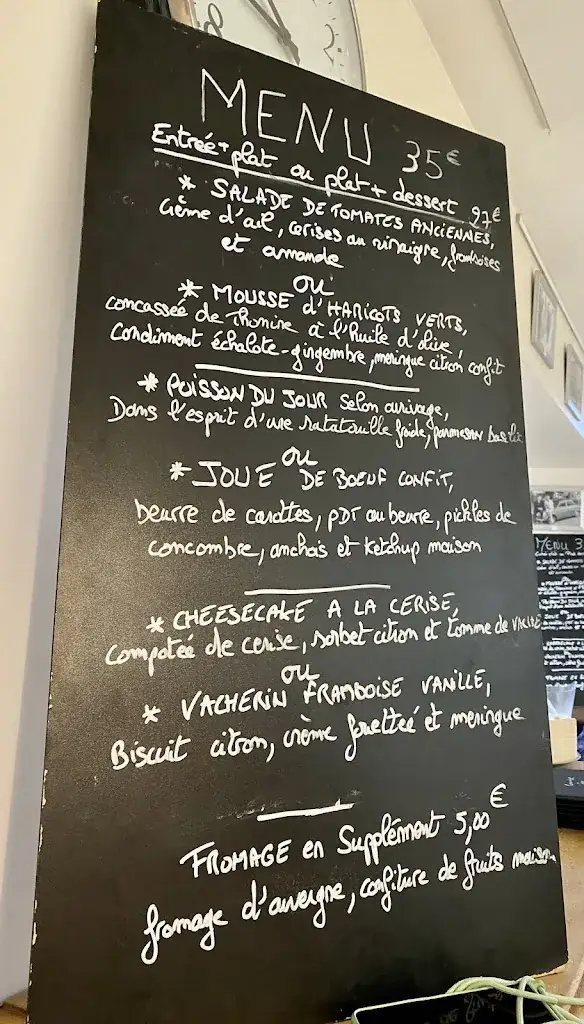 MENU 35€
Entrée + plat ou plat + dessert 27€
* SALADE DE TOMATES ANCIENNES,
Crème d'ail, cerises au vinaigre, framboises
et amande
ou
* MOUSSE d'HARICOTS VERTS,
concassée de Thonine à l'huile d'olive,
Condiment échalote-gingembre, meringue citron confit
* POISSON DU JOUR selon arrivage,
Dans l'esprit d'une ratatouille froide, parmesan basilic
ou
* JOUE DE BOEUF CONFIT,
beurre de carottes, PDT au beurre, pickles de
concombre, anchois et ketchup maison
* CHEESECAKE A LA CERISE,
Compotée de cerise, sorbet citron et tomme de VACHE
ou
* VACHERIN FRAMBOISE VANILLE,
Biscuit citron, crème fouettée et meringue
FROMAGE en Supplément 5,00€
fromage d'auvergne, confiture de fruits maison
MENU 3